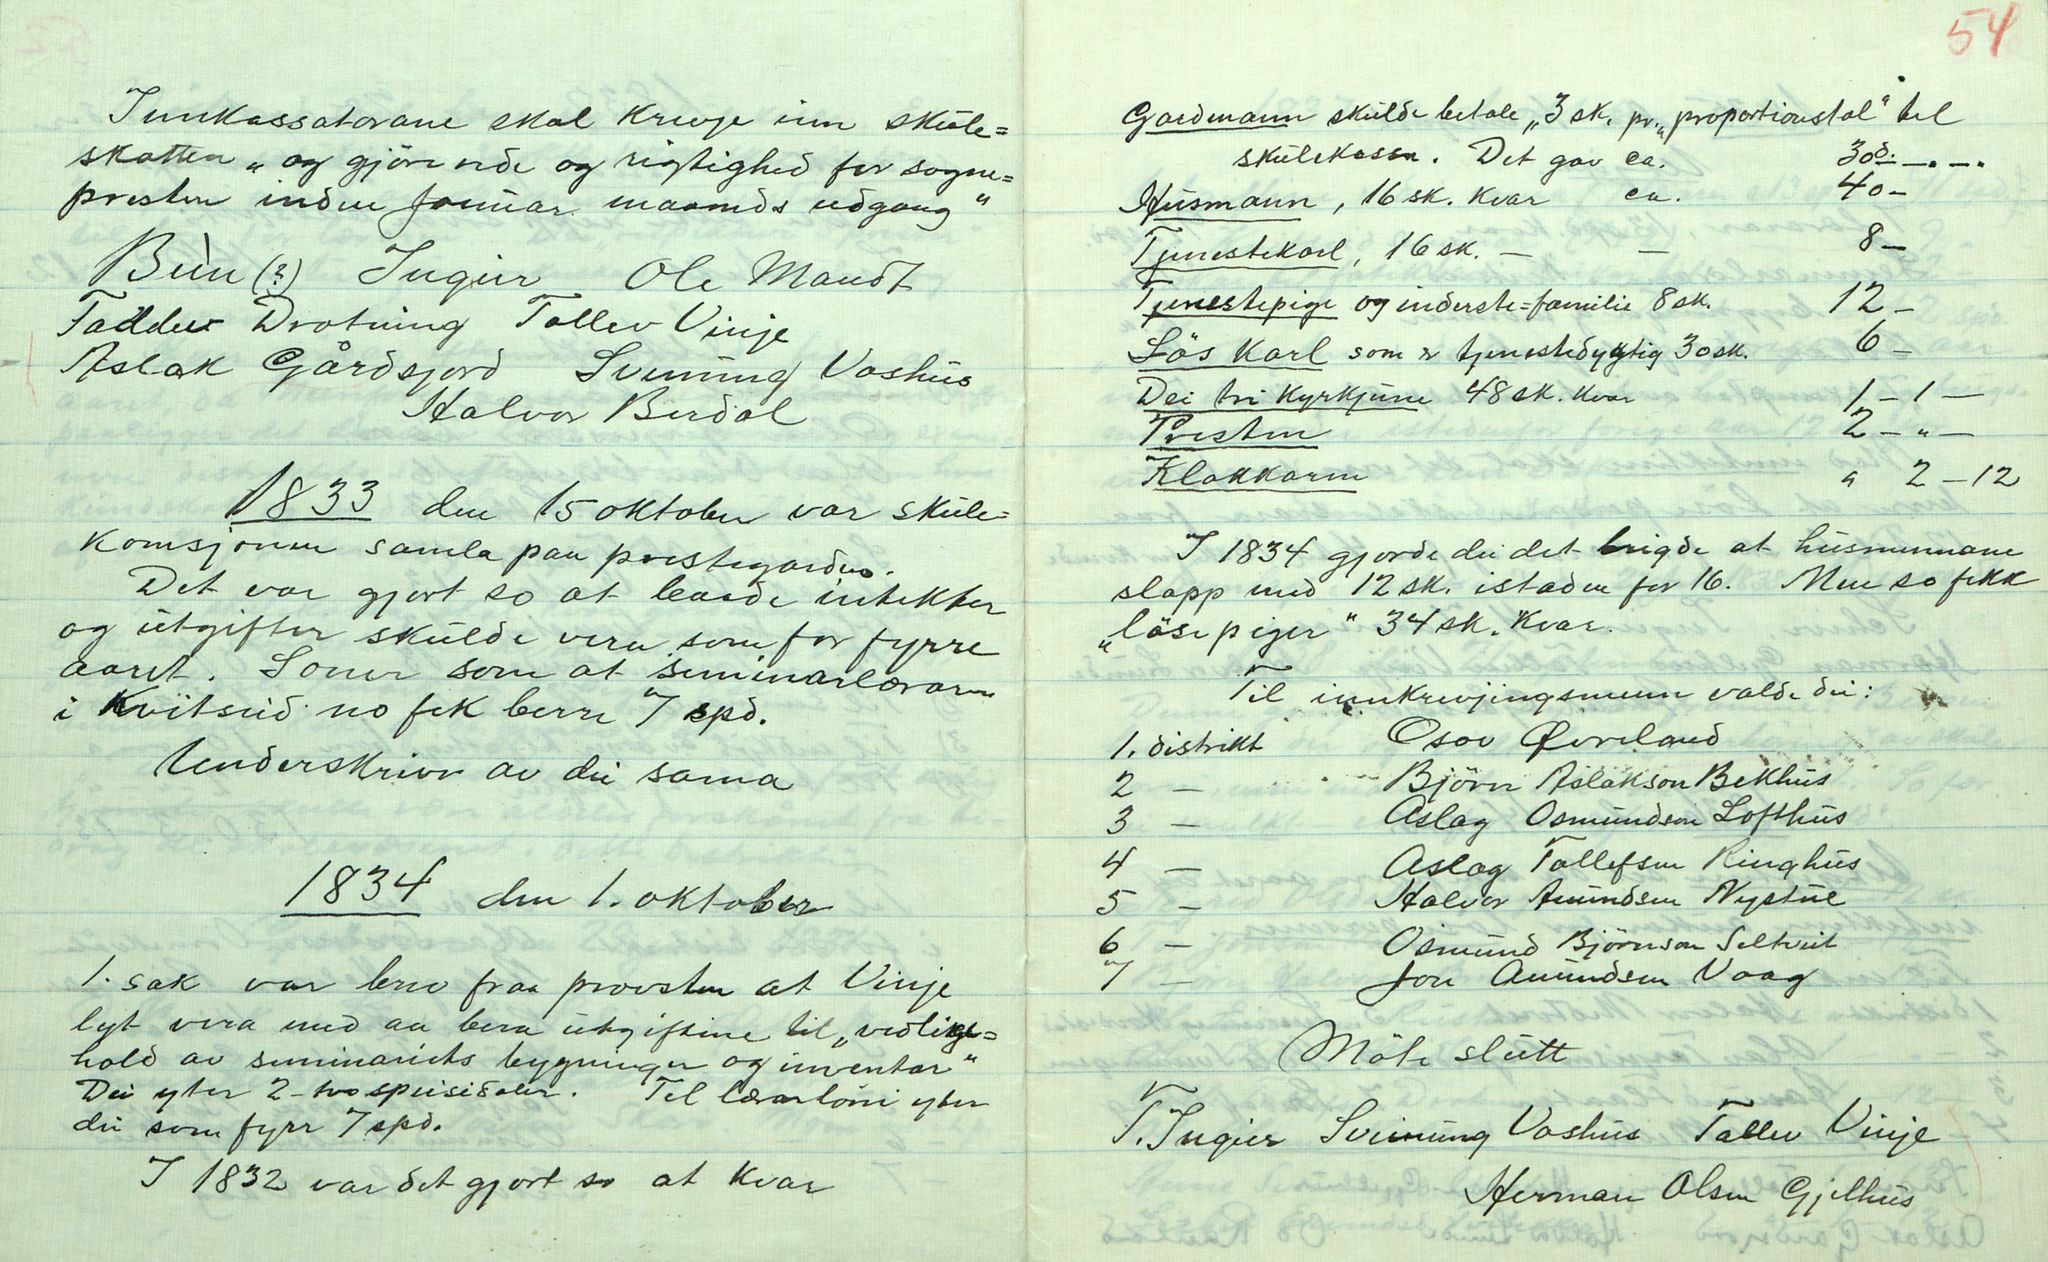 Innkassatorane skal krevje inn skule=
skatten „og gjöre rede og rigtighed for sogne=
presten inden januar maaneds udgang“
Bùù (?) Ingier Ole Mandt
Taddev Drotning Tallev Vinje
Aslak Gårdsjord Sveinung Vashus
Halvor Berdal
1833 den 15 oktober var skule=
komsjonen samla paa prestegarden.
Det var gjort so at baade intekter
og utgifter skulde vera som for fyrre
aaret. Soner som at seminarlæraren
i Kvitseid no fek berre 7 spd.
Underskrive av dei sama
1834 den 1. oktober
1. sak var brev fraa provsten at Vinje
lyt vera med aa bera utgiftine til „vedlige=
hold av seminariets bygninger og inventar“
Dei yter 2-tvo speisidaler. Til lærarlöni yter
dei som fyrr 7 spd.
I 1832 var det gjort so at kvar
54
Gardmann skulde betale „3 sk. pr. „proportionstal“ til
skulekassa. Det gav ca. 30d. — . — .
Husmann, 16 sk. kvar ca. 40 —
Tjenestekarl, 16 sk. — — 8 —
Tjenestepige og inderste=familie 8 sk. 12 —
Lös Karl som er tjenestedygtig 30 sk. 6 —
Dei tri kyrkjune 48 sk. kvar 1 — 1 —
Presten 2 — „ —
Klokkaren „ 2 — 12
I 1834 gjorde dei det brigde at husmennane
slapp med 12 sk. istaden for 16. Men so fekk
„löse piger“ 34 sk. kvar.
Til innkrevjingsmenn valde dei:
1. distrikt Osov Øverland
2 — Björn Aslakson Bekhus
3 — Aslag Osmundson Lofthus
4 — Aslag Tallefsen Ringhus
5 — Halvor Amundsen Nystul
6 — Osmund Björnson Seltveit
og
7 — Jon Amundsen Vaag
Möte slutt
T. Ingier Sveinung Vashus Tallev Vinje
Herman Olsen Gjelhus